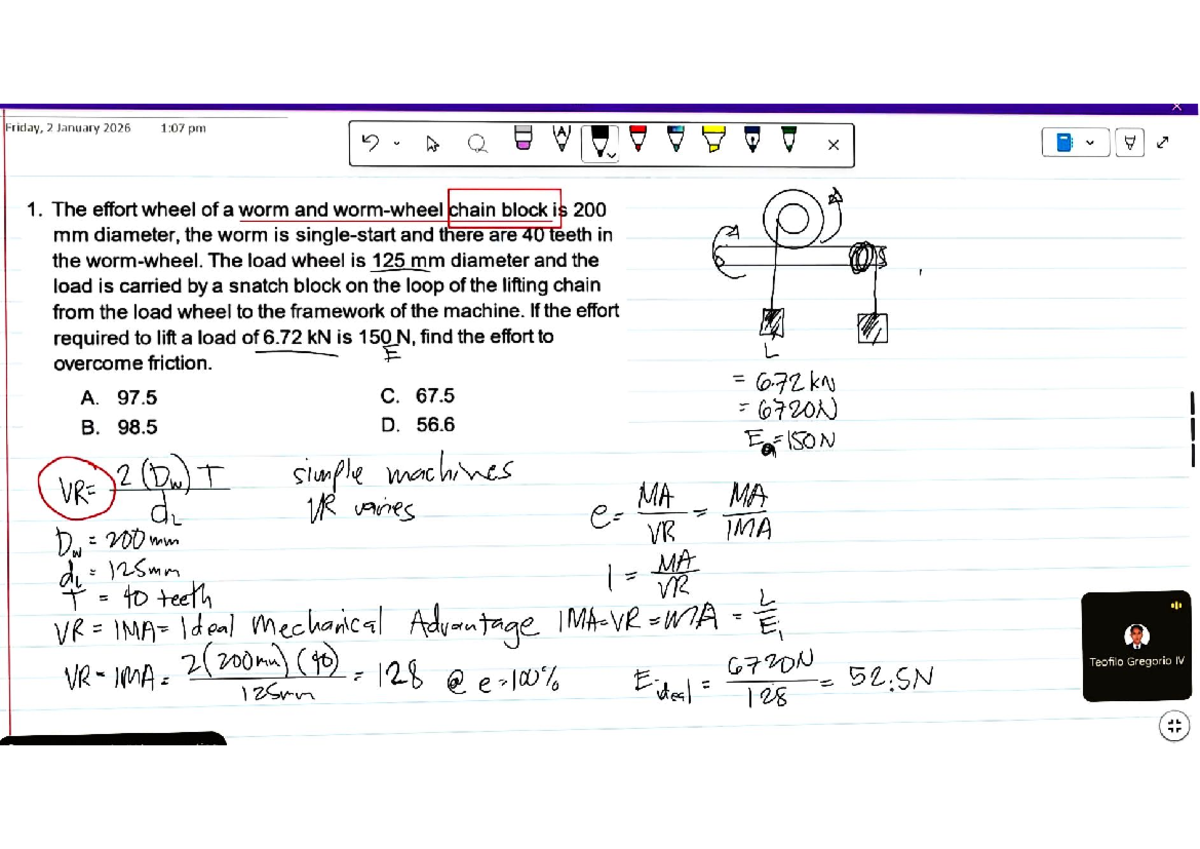 Friday, 2 January 2026 1:07 pm
1. The effort wheel of a worm and worm-wheel chain block is 200
mm diameter, the worm is single-start and there are 40 teeth in
the worm-wheel. The load wheel is 125 mm diameter and the
load is carried by a snatch block on the loop of the lifting chain
from the load wheel to the framework of the machine. If the effort
required to lift a load of 6.72 kN is 150 N, find the effort to
overcome friction.
E
A. 97.5 C. 67.5
B. 98.5 D. 56.6
L
= 6.72 kN
= 6720N
E = 150N
VR = 2(Dw) T / dL
simple machines
VR varies
Dw = 200mm
dL = 125mm
T = 40 teeth
e = MA / VR = MA / IMA
1 = MA / VR
VR = IMA = Ideal Mechanical Advantage IMA = VR = MA = L / E
VR = IMA = 2(200mm)(40) / 125mm = 128 @ e = 100%
E ideal = 6720N / 128 = 52.5N
Teofilo Gregorio IV